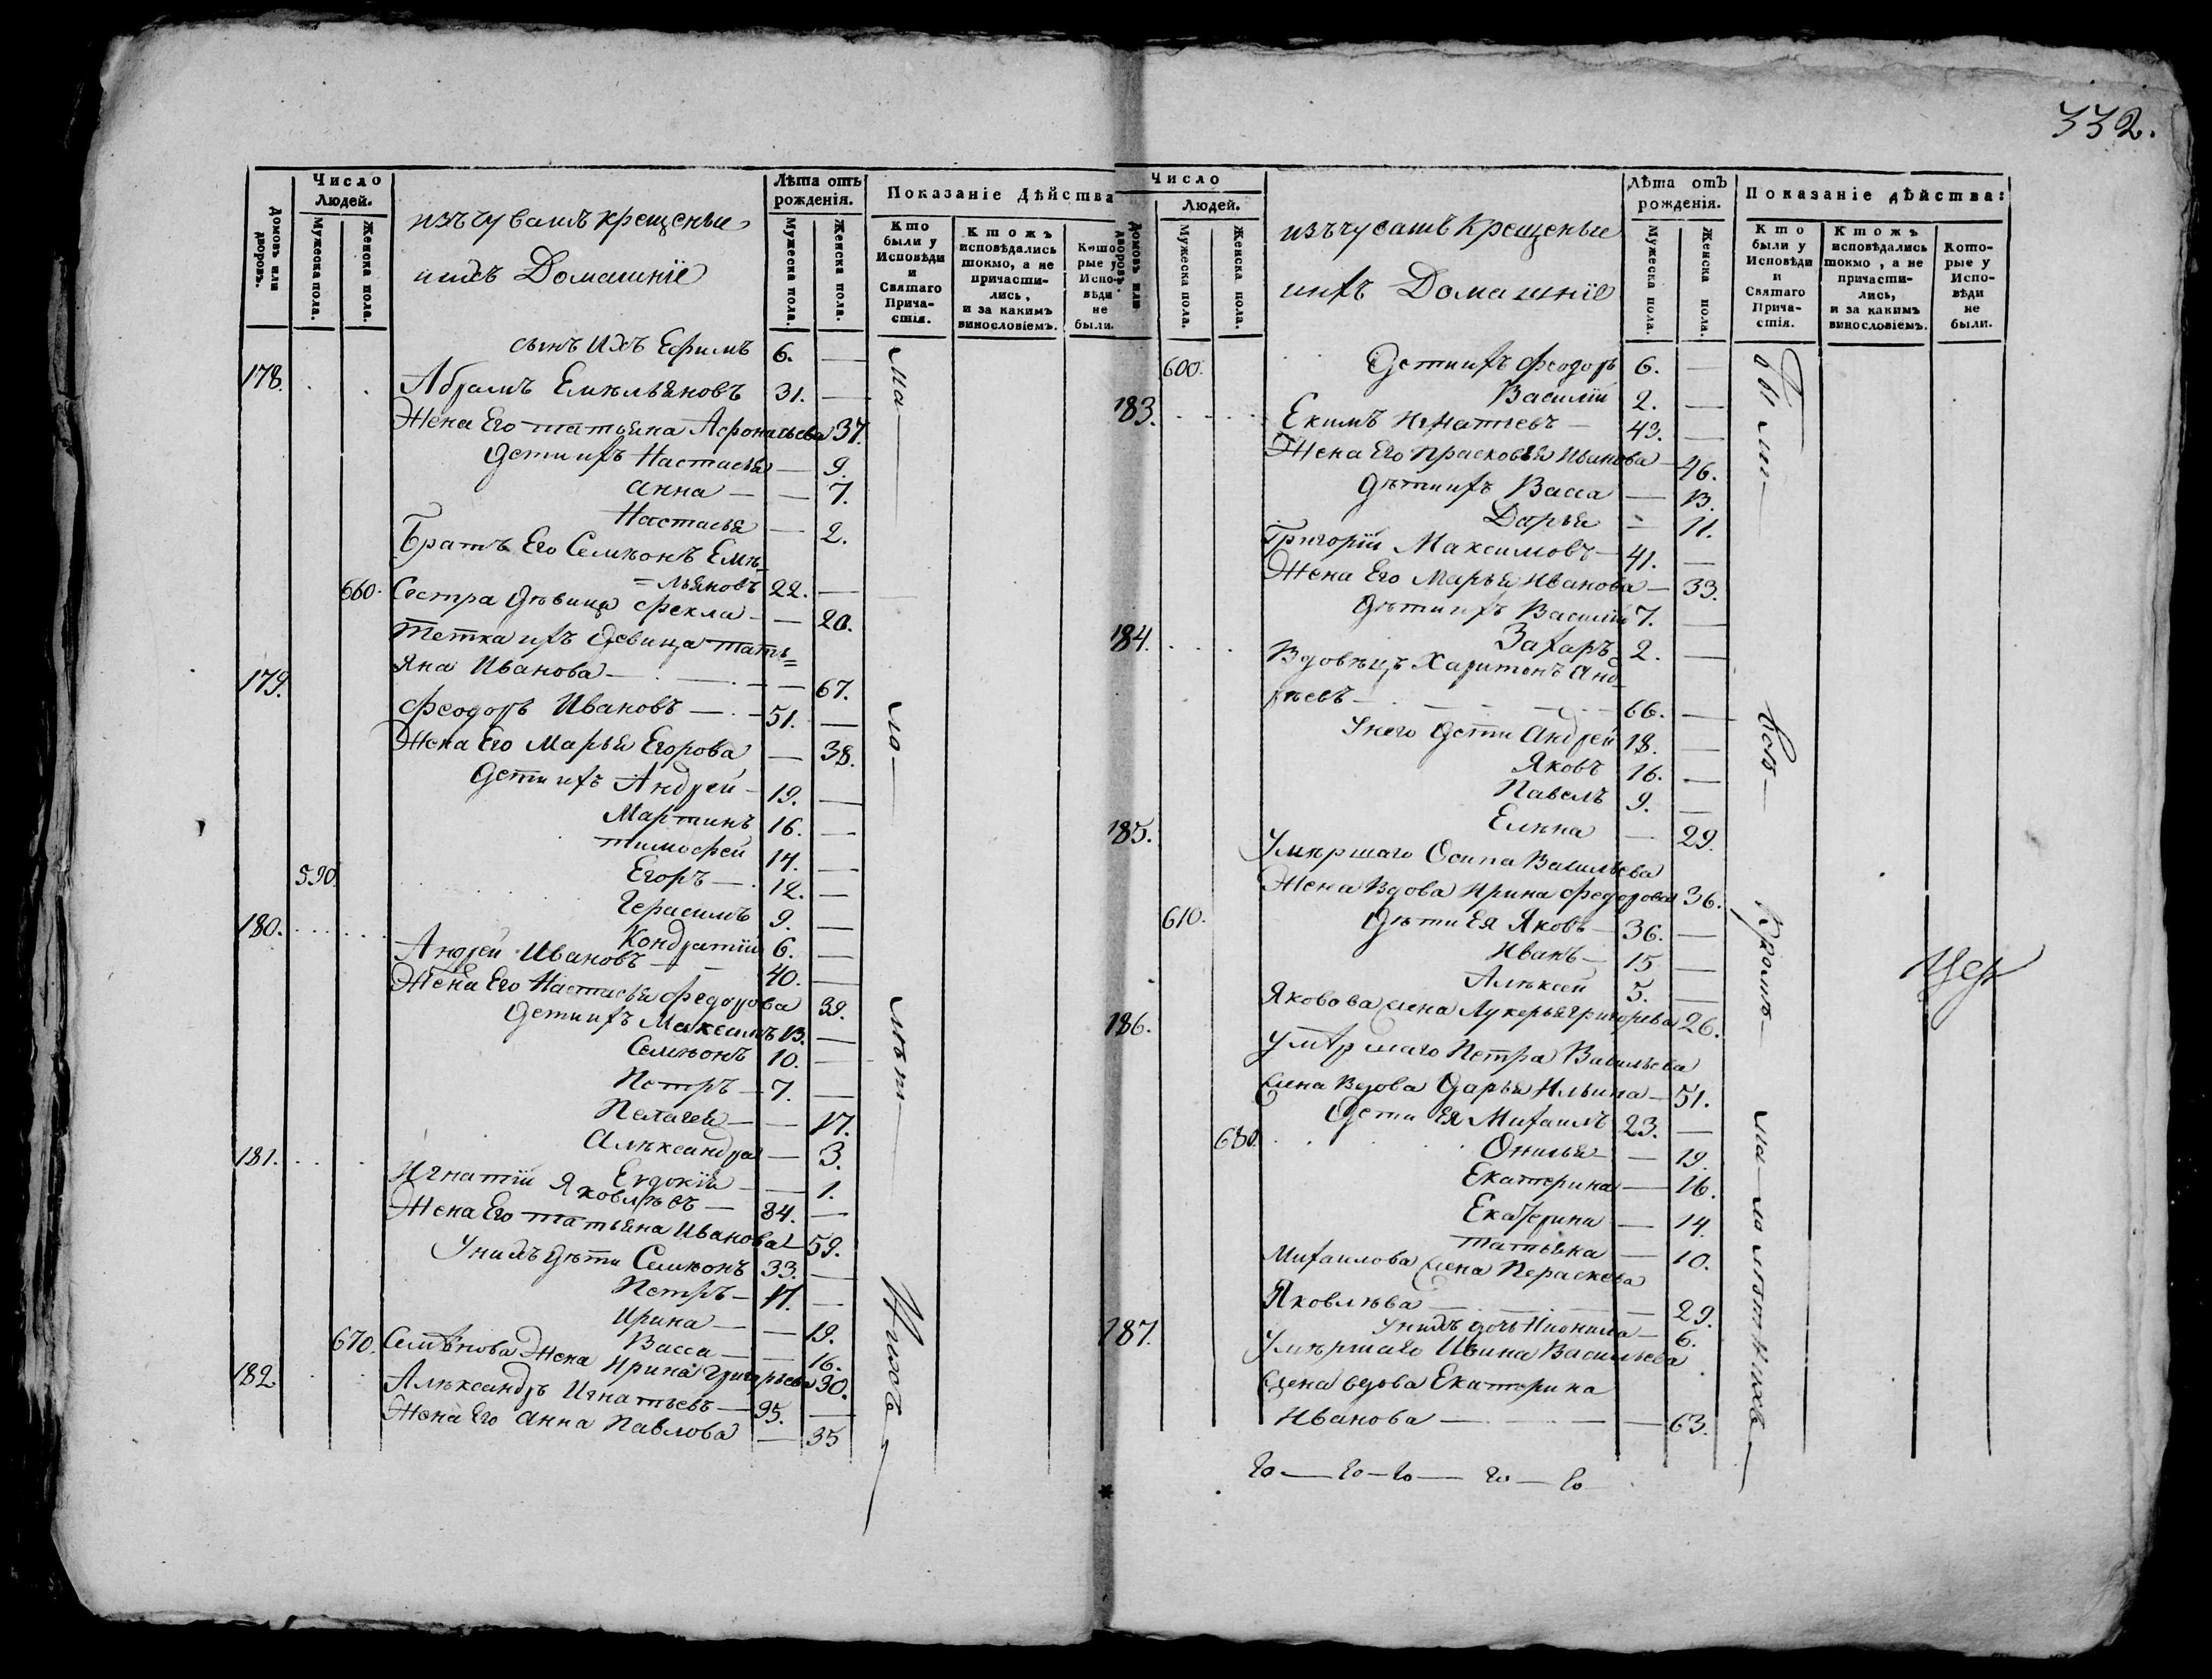 332.
Домовъ или дворовъ.
Число Людей.
Мужеска пола.
Женска пола.
изъ чувашъ крещеные
и ихъ Домашніе
Лѣта отъ рожденія.
Мужеска пола.
Женска пола.
Показаніе Дѣйства
Кто были у Исповѣди и Святаго Причастія.
Ктожъ исповѣдались токмо, а не причастились, и за какимъ винословіемъ.
Которые у Исповѣди не были.
сынъ Ихъ Ефимъ 6. —
178. Абрамъ Емельяновъ 31. —
Жена Его татьяна Афонасьева 37.
Дети ихъ Настасья — 9.
Анна — — 7.
Настасья — 2.
Братъ Его Семѣонъ Емѣ-
=льяновъ 22. —
660. Сестра Дѣвица Фекла — — 20.
тетка ихъ Девица тать=
яна Иванова — — — 67.
179. Феодоръ Ивановъ — 51. —
Жена Его Марья Егорова — 38.
Дети ихъ Андрей — 19. —
Мартинъ 16. —
тимофей 14. —
590. Егоръ — 12. —
Герасимъ 9. —
Кондратій 6. —
180. Андрей Ивановъ — 40. —
Жена Его Настасья Федорова 39.
Дети ихъ Максимъ 13. —
Семѣонъ 10. —
Петръ — 7. —
Пелагея — — 17.
Алѣксандра — 3.
Евдокія — — 1.
181. Игнатій Яковлѣвъ — 84. —
Жена Его татьяна Иванова — 59.
У нихъ дѣти Семѣонъ 33. —
Петръ — 17. —
Ирина — — 19.
Васса — — 16.
670. Семѣнова Жена Ирина Григорьева 30.
182. Алѣксандръ Игнатьевъ — 35. —
Жена Его Анна Павлова — 35
ма — ло — лѣт — нихъ
Домовъ или дворовъ.
Число Людей.
Мужеска пола.
Женска пола.
изъ чувашъ Крещеные
и ихъ Домашніе
Лѣта отъ рожденія.
Мужеска пола.
Женска пола.
Показаніе дѣйства:
Кто были у Исповѣди и Святаго Причастія.
Ктожъ исповѣдались токмо, а не причастились, и за какимъ винословіемъ.
Которые у Исповѣди не были.
600. Дети ихъ Феодоръ 6. —
Василій 2. —
183. Екимъ Игнатьевъ — 43. —
Жена Его Прасковья Иванова — 46.
Дѣти ихъ Васса — 13.
Дарья — 11.
Григорій Максимовъ — 41. —
Жена Его Марья Иванова — 33.
Дѣти ихъ Василій 7. —
Захаръ 2. —
184. Вдовѣцъ Харитонъ Анд-
рѣевъ — — 66. —
У него Дети Андрей 18. —
Яковъ 16. —
Павелъ 9. —
Елѣна — 29.
185. Умѣршаго Осипа Васильева
Жена Вдова Ирина Федорова 36.
610. Дѣти Ея Яковъ — 36. —
Иванъ — 15 —
Алѣксей 5. —
Яковова жена Лукерья Григорева 26.
186. Умѣршаго Петра Васильева
жена Вдова Дарья Ильина — 51.
Дети Ея Михаилъ 23. —
680. Онисья — 19.
Екатерина — 16.
Екатерина — 14.
татьяна — 10.
Михаилова жена Пераскева
Яковлѣва — — 29.
У нихъ дочь — 6.
187. Умѣршаго Ивана Васильева
жена вдова Екатерина
Иванова — — 63.
были — всѣ — Кромѣ — ма — ло лѣтнихъ